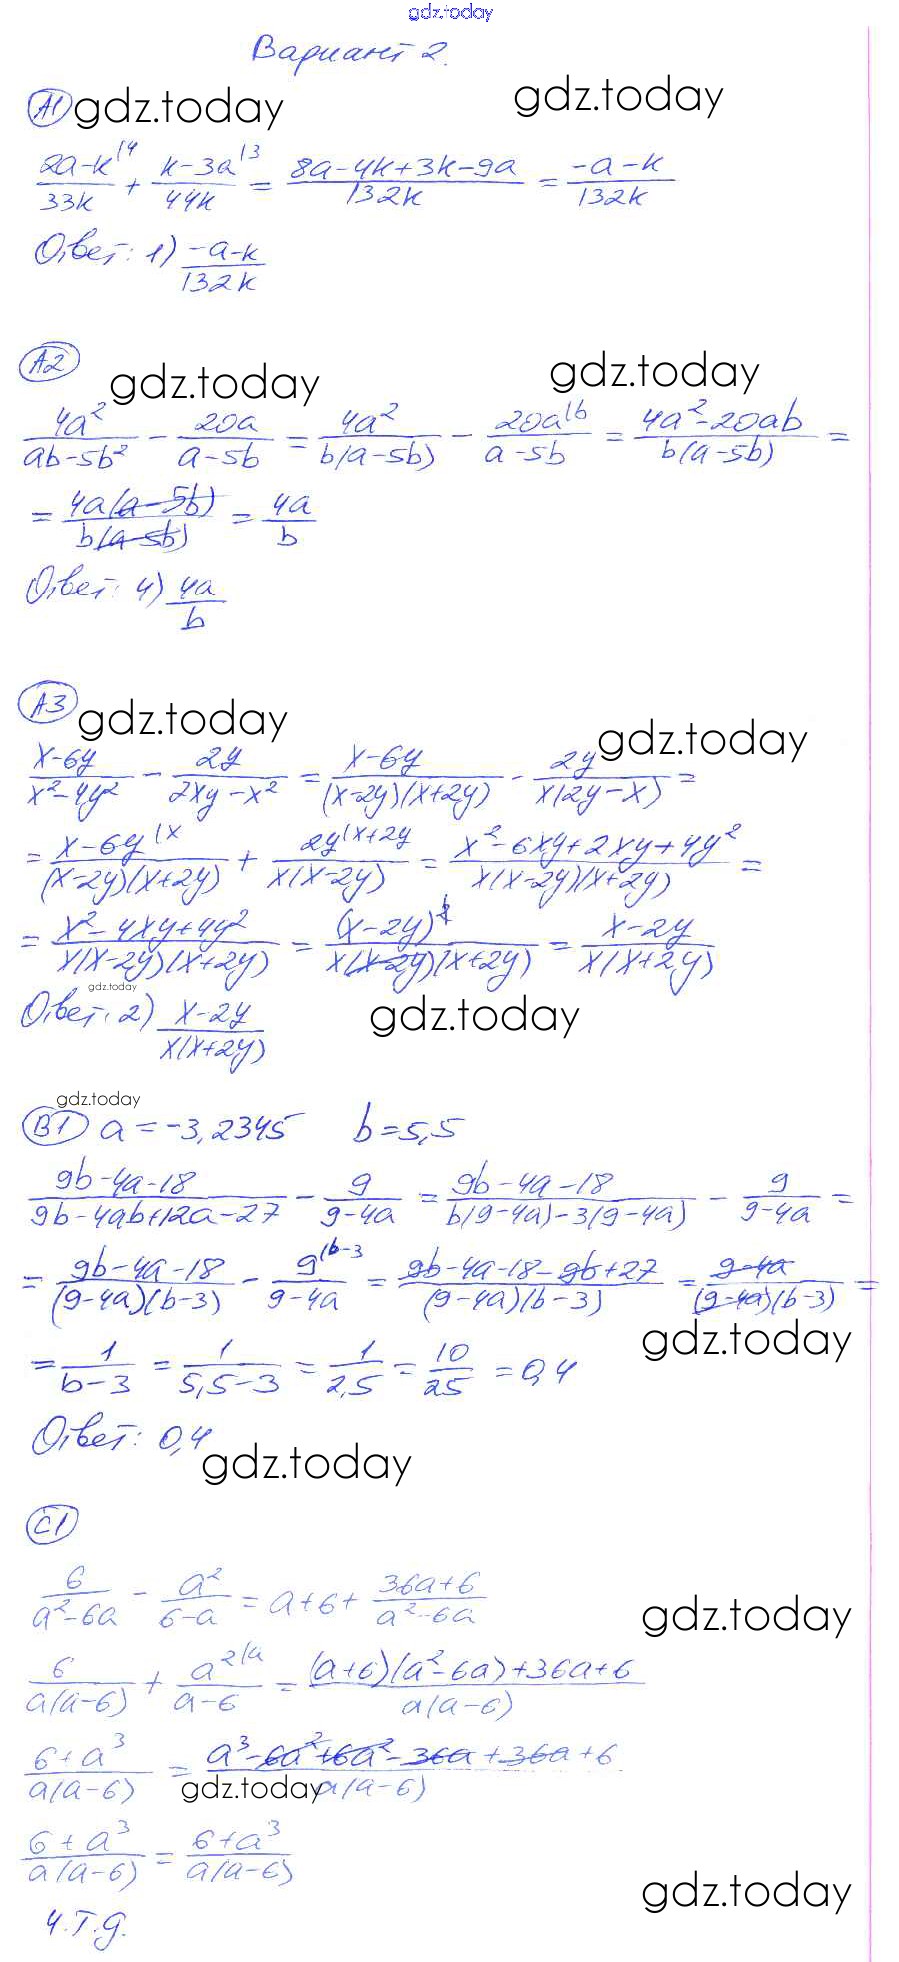 gdz.today
Вариант 2.
А1 gdz.today gdz.today
(2a-k)/33k |4 + (k-3a)/44k |3 = (8a-4k+3k-9a)/132k = (-a-k)/132k
Ответ: 1) (-a-k)/132k
А2 gdz.today gdz.today
4a²/(ab-5b²) - 20a/(a-5b) = 4a²/(b(a-5b)) - 20a|b/(a-5b) = (4a²-20ab)/(b(a-5b)) =
= 4a(a-5b)/(b(a-5b)) = 4a/b
Ответ: 4) 4a/b
А3 gdz.today gdz.today
(x-6y)/(x²-4y²) - 2y/(2xy-x²) = (x-6y)/((x-2y)(x+2y)) - 2y/(x(2y-x)) =
= (x-6y)|x/((x-2y)(x+2y)) + 2y|x+2y/(x(x-2y)) = (x²-6xy+2xy+4y²)/(x(x-2y)(x+2y)) =
= (x²-4xy+4y²)/(x(x-2y)(x+2y)) = (x-2y)²/(x(x-2y)(x+2y)) = (x-2y)/(x(x+2y))
gdz.today
Ответ: 2) (x-2y)/(x(x+2y)) gdz.today
gdz.today
В1 a=-3,2345 b=5,5
(9b-4a-18)/(9b-4ab+12a-27) - 9/(9-4a) = (9b-4a-18)/(b(9-4a)-3(9-4a)) - 9/(9-4a) =
= (9b-4a-18)/((9-4a)(b-3)) - 9|b-3/(9-4a) = (9b-4a-18-9b+27)/((9-4a)(b-3)) = (9-4a)/((9-4a)(b-3)) =
gdz.today
= 1/(b-3) = 1/(5,5-3) = 1/2,5 = 10/25 = 0,4
Ответ: 0,4
gdz.today
С1
6/(a²-6a) - a²/(6-a) = a+6+ (36a+6)/(a²-6a)
gdz.today
6/(a(a-6)) + a²|a/(a-6) = ((a+6)(a²-6a)+36a+6)/(a(a-6))
(6+a³)/(a(a-6)) = (a³-6a²+6a²-36a+36a+6)/(a(a-6))
gdz.today
(6+a³)/(a(a-6)) = (6+a³)/(a(a-6))
gdz.today
ч.т.д.